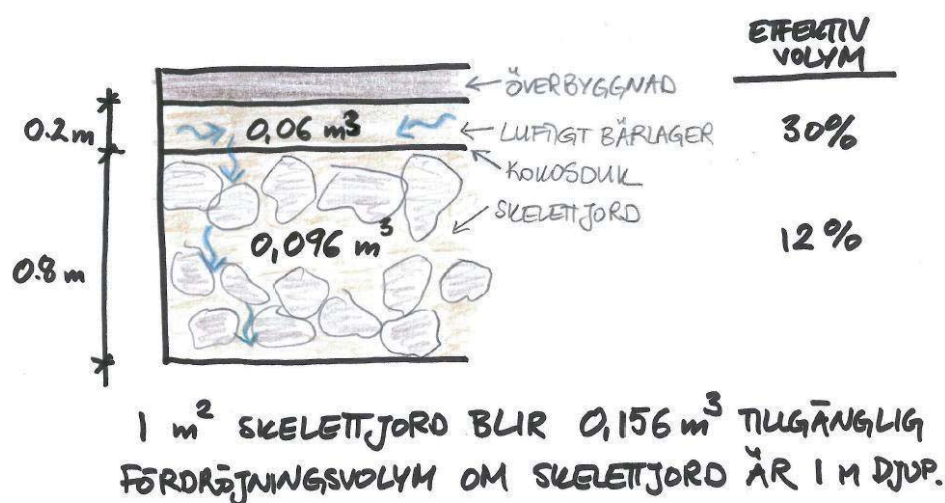 EFFEKTIV
VOLYM
ÖVERBYGGNAD
0.2 m
0,06 m³
LUFTIGT BÄRLAGER
30%
KOKOSDUK
SKELETTJORD
0,096 m³
12%
0.8 m
1 m² SKELETTJORD BLIR 0,156 m³ TILLGÄNGLIG
FÖRDRÖJNINGSVOLYM OM SKELETTJORD ÄR 1 M DJUP.